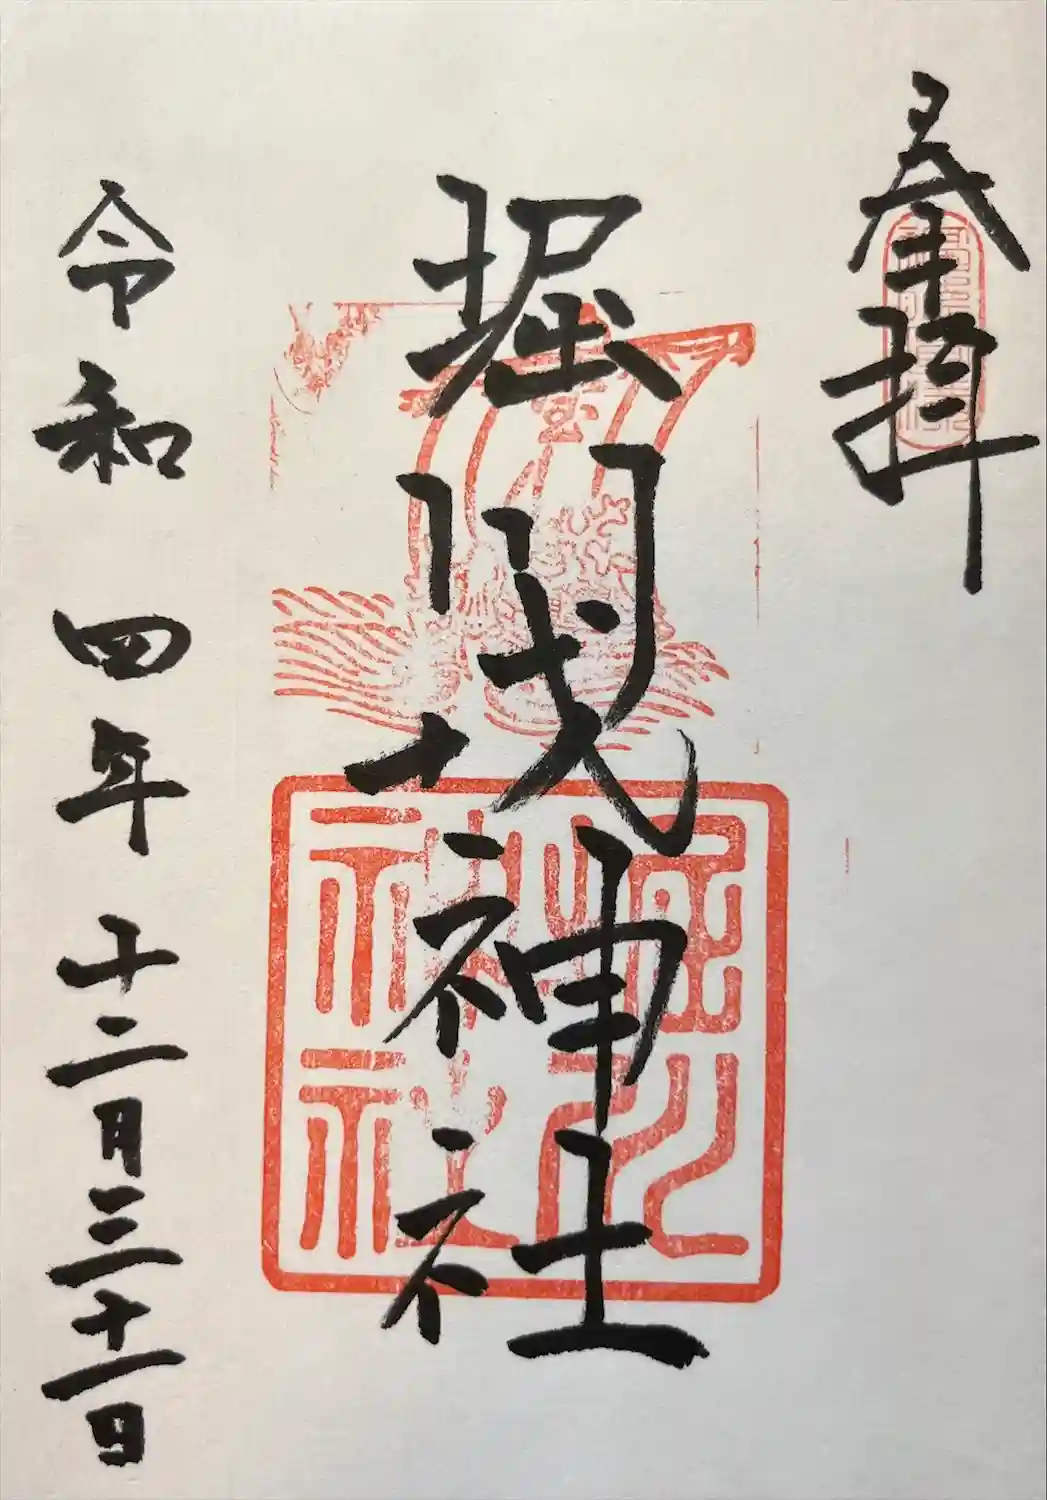 奉拝
堀川戎神社
令和四年十二月三十一日
堀川
神社